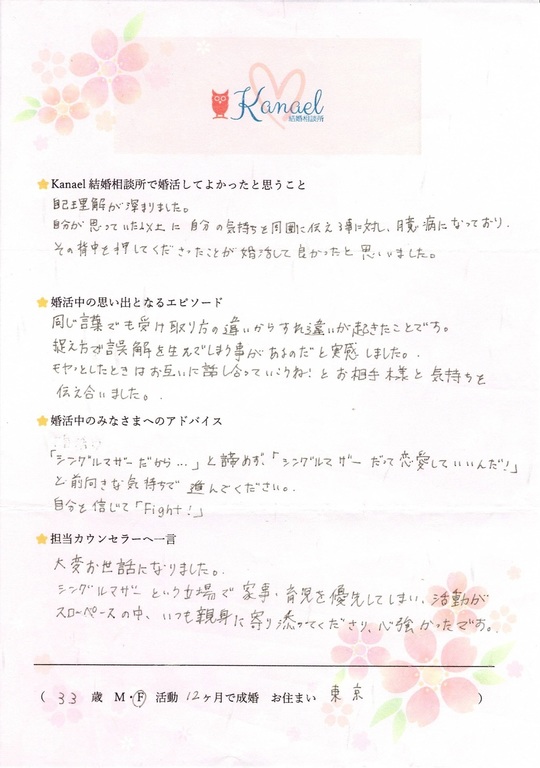 Kanael
結婚相談所
Kanael 結婚相談所で婚活してよかったと思うこと
自己理解が深まりました。
自分が思っていた以上に自分の気持ちを周囲に伝える事に対し、臆病になっており、
その背中を押してくださったことが婚活して良かったと思いました。
婚活中の思い出となるエピソード
同じ言葉でも受け取り方の違いからすれ違いが起きたことです。
捉え方で誤解を生んでしまう事があるのだと実感しました。
モヤッとしたときはお互いに話し合っていこうね!とお相手様と気持ちを
伝え合いました。
婚活中のみなさまへのアドバイス
「シングルマザーだから…」と諦めず、「シングルマザーだって恋愛していいんだ!」
と前向きな気持ちで進んでください。
自分を信じて「Fight!」
担当カウンセラーへ一言
大変お世話になりました。
シングルマザーという立場で家事・育児を優先してしまい、活動が
スローペースの中、いつも親身に寄り添ってくださり、心強かったです。
( 33 歳 M・F 活動 12ヶ月で成婚 お住まい 東京 )